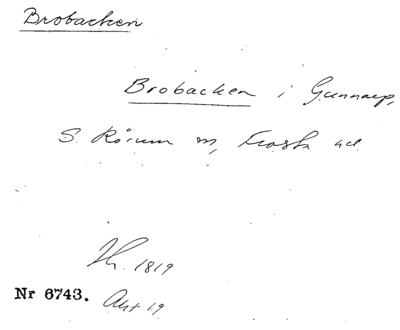 Brobacken
Brobacken i Gunnarp,
S. Rörum sn, Frosta hd.
1819
Nr 6743. Akt 19